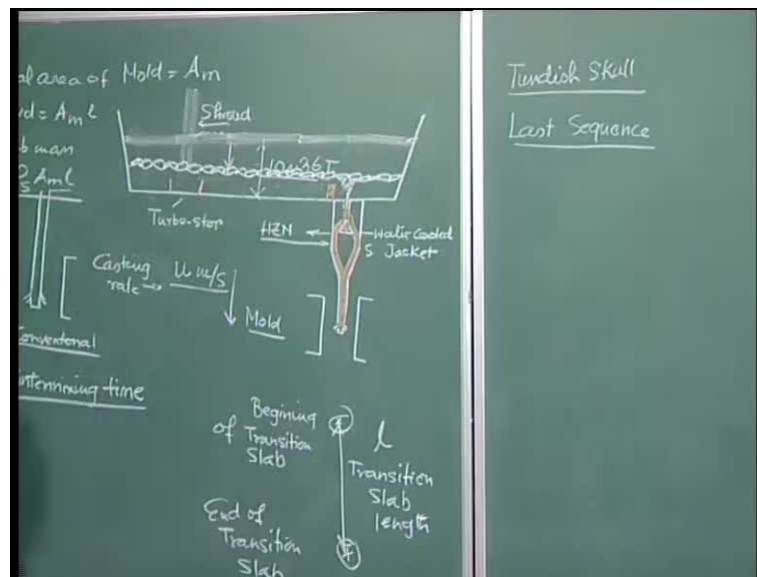 al area of Mold = Am
= Am l
man
Aml
Shroud
10~36T
Turbo-stop
HZN
water cooled
Jacket
Casting
rate → u m/s
Mold
Conventional
intermixing time
Begining
of Transition
Slab
l
Transition
Slab
length
End of
Transition
Slab
Tundish Skull
Last Sequence